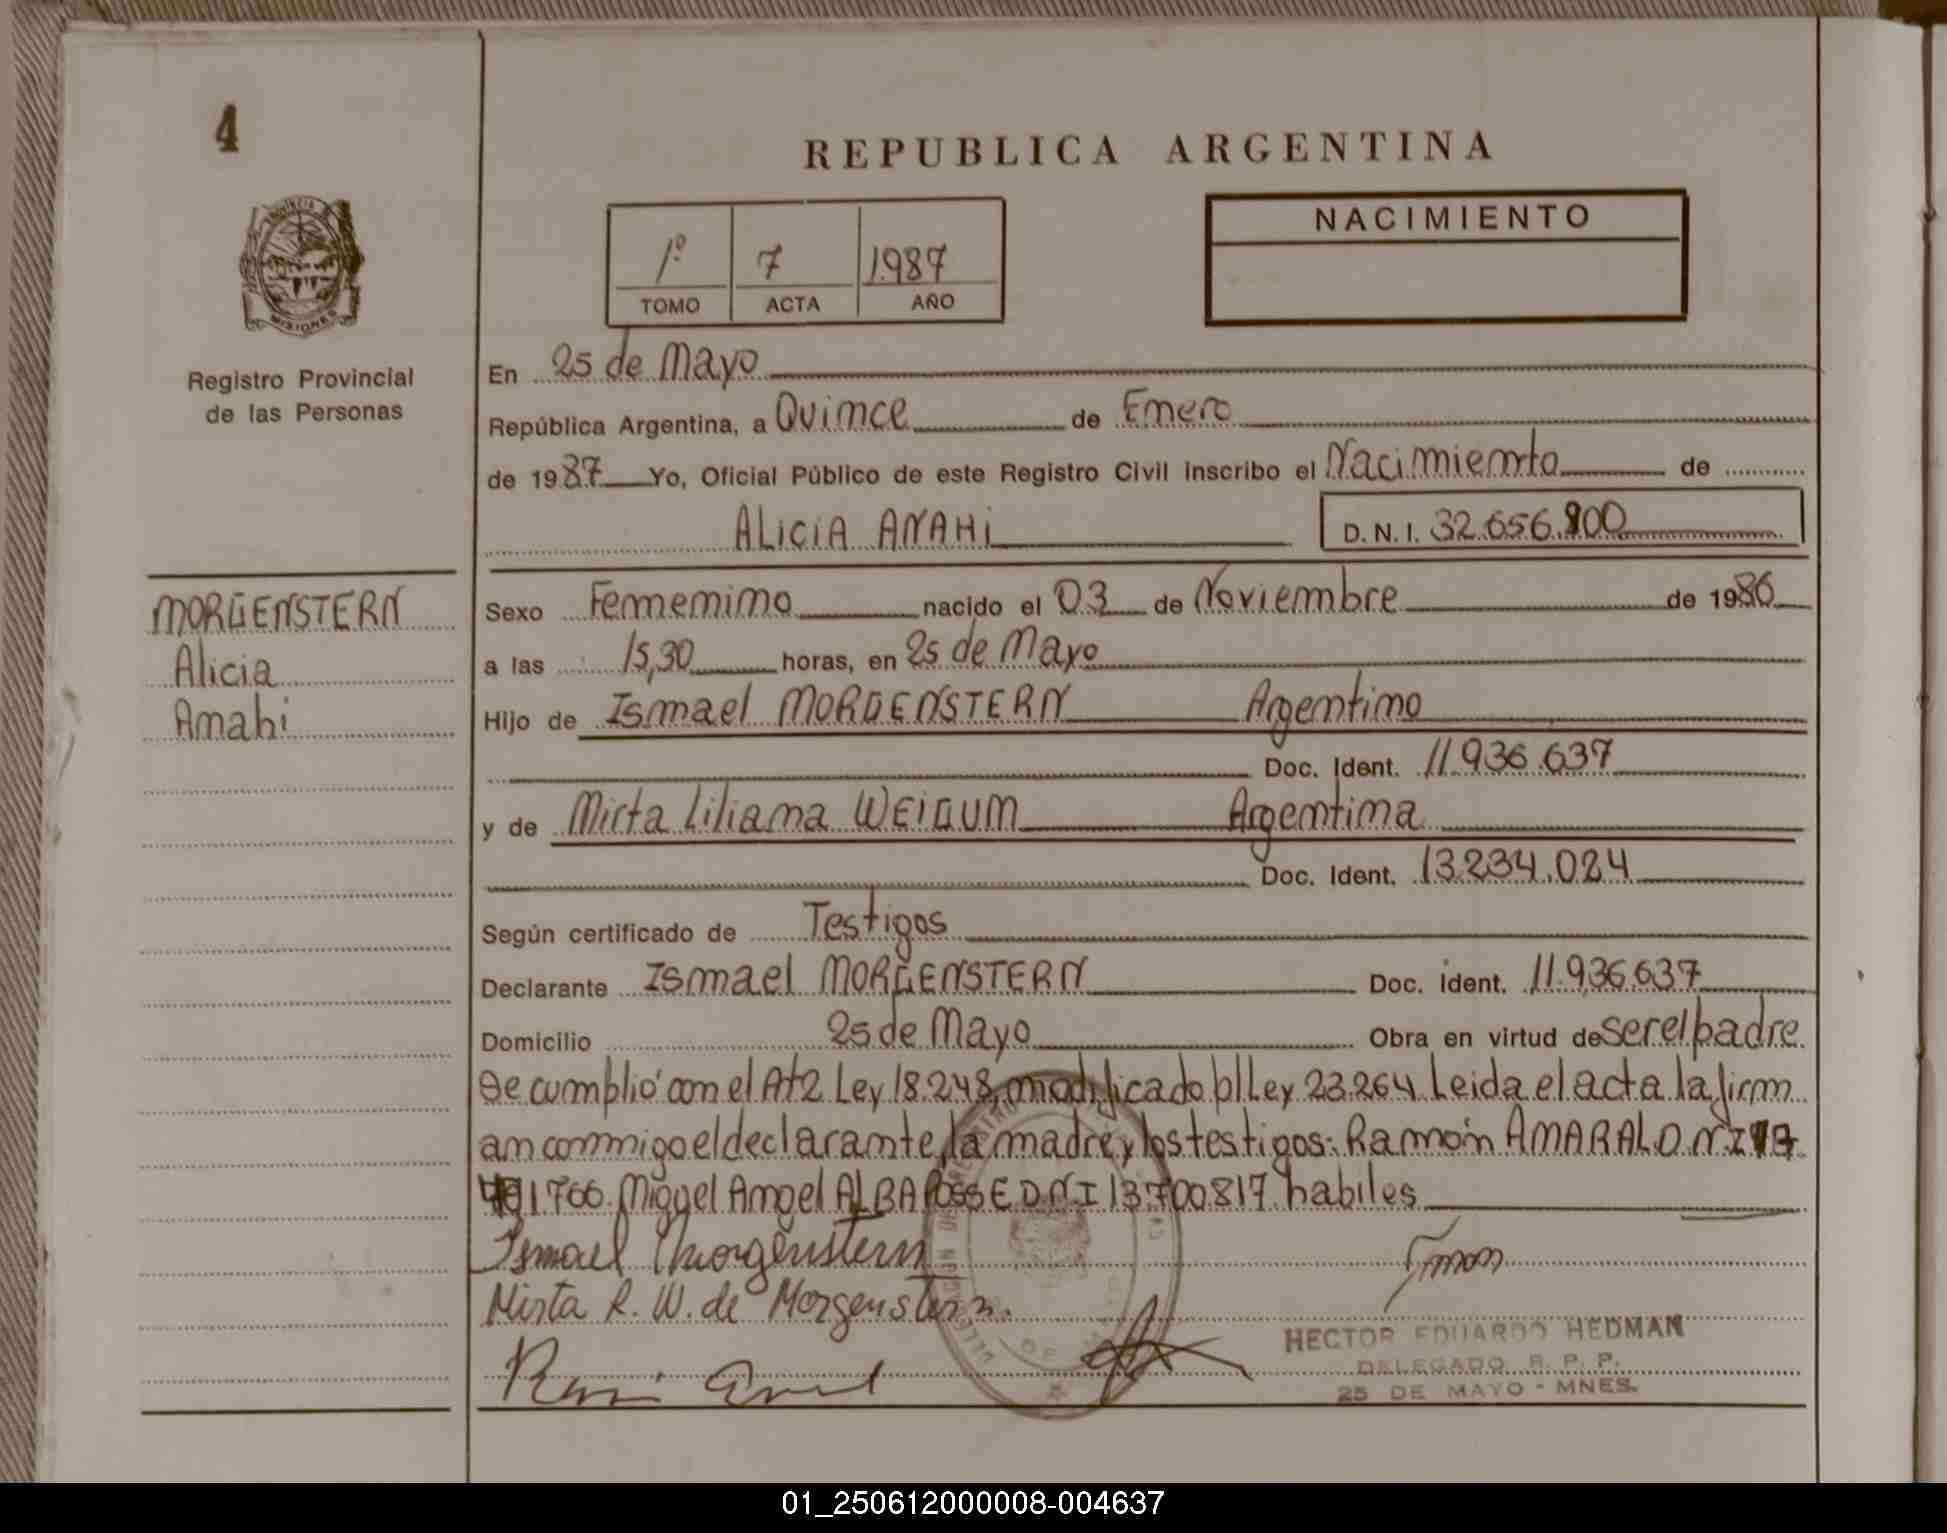 4
REPUBLICA ARGENTINA
PROVINCIA DE
MISIONES
Registro Provincial
de las Personas
1º 7 1.987
TOMO ACTA AÑO
NACIMIENTO
En 25 de Mayo
República Argentina, a Quince de Enero
de 1987 Yo, Oficial Público de este Registro Civil inscribo el Nacimiento de
ALICIA ANAHI D. N. I. 32.656.900
MORGENSTERN
Alicia
Anahi
Sexo Femenino nacido el 03 de Noviembre de 1986
a las 15,30 horas, en 25 de Mayo
Hijo de Ismael MORGENSTERN Argentino
Doc. Ident. 11.936.637
y de Mirta Liliana WEIGUM Argentina
Doc. Ident. 13.234.024
Según certificado de Testigos
Declarante Ismael MORGENSTERN Doc. ident. 11.936.637
Domicilio 25 de Mayo Obra en virtud de ser el padre
Se cumplió con el At2 Ley 18.248, modificado p/Ley 23.264 Leida el acta la firm
an conmigo el declarante, la madre y los testigos: Ramón AMARAL D.N.I
1.766. Miguel Angel ALBA POSSE D.N.I 13.700.817 habiles
Ismael Morgenstern
Mirta R. W. de Morgenstern.
HECTOR EDUARDO HEDMAN
DELEGADO R. P. P.
25 DE MAYO - MNES.
01_250612000008-004637